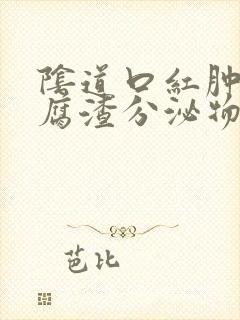 陰道口紅肿
腐渣分泌物
芭比